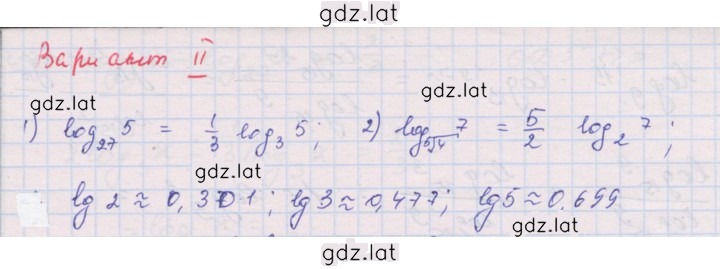 gdz.lat
Вариант II
gdz.lat gdz.lat
1) log₂₇ 5 = 1/3 log₃ 5; 2) log_{⁵√4} 7 = 5/2 log₂ 7;
gdz.lat
lg 2 ≈ 0,301; lg 3 ≈ 0,477; lg 5 ≈ 0.699
gdz.lat